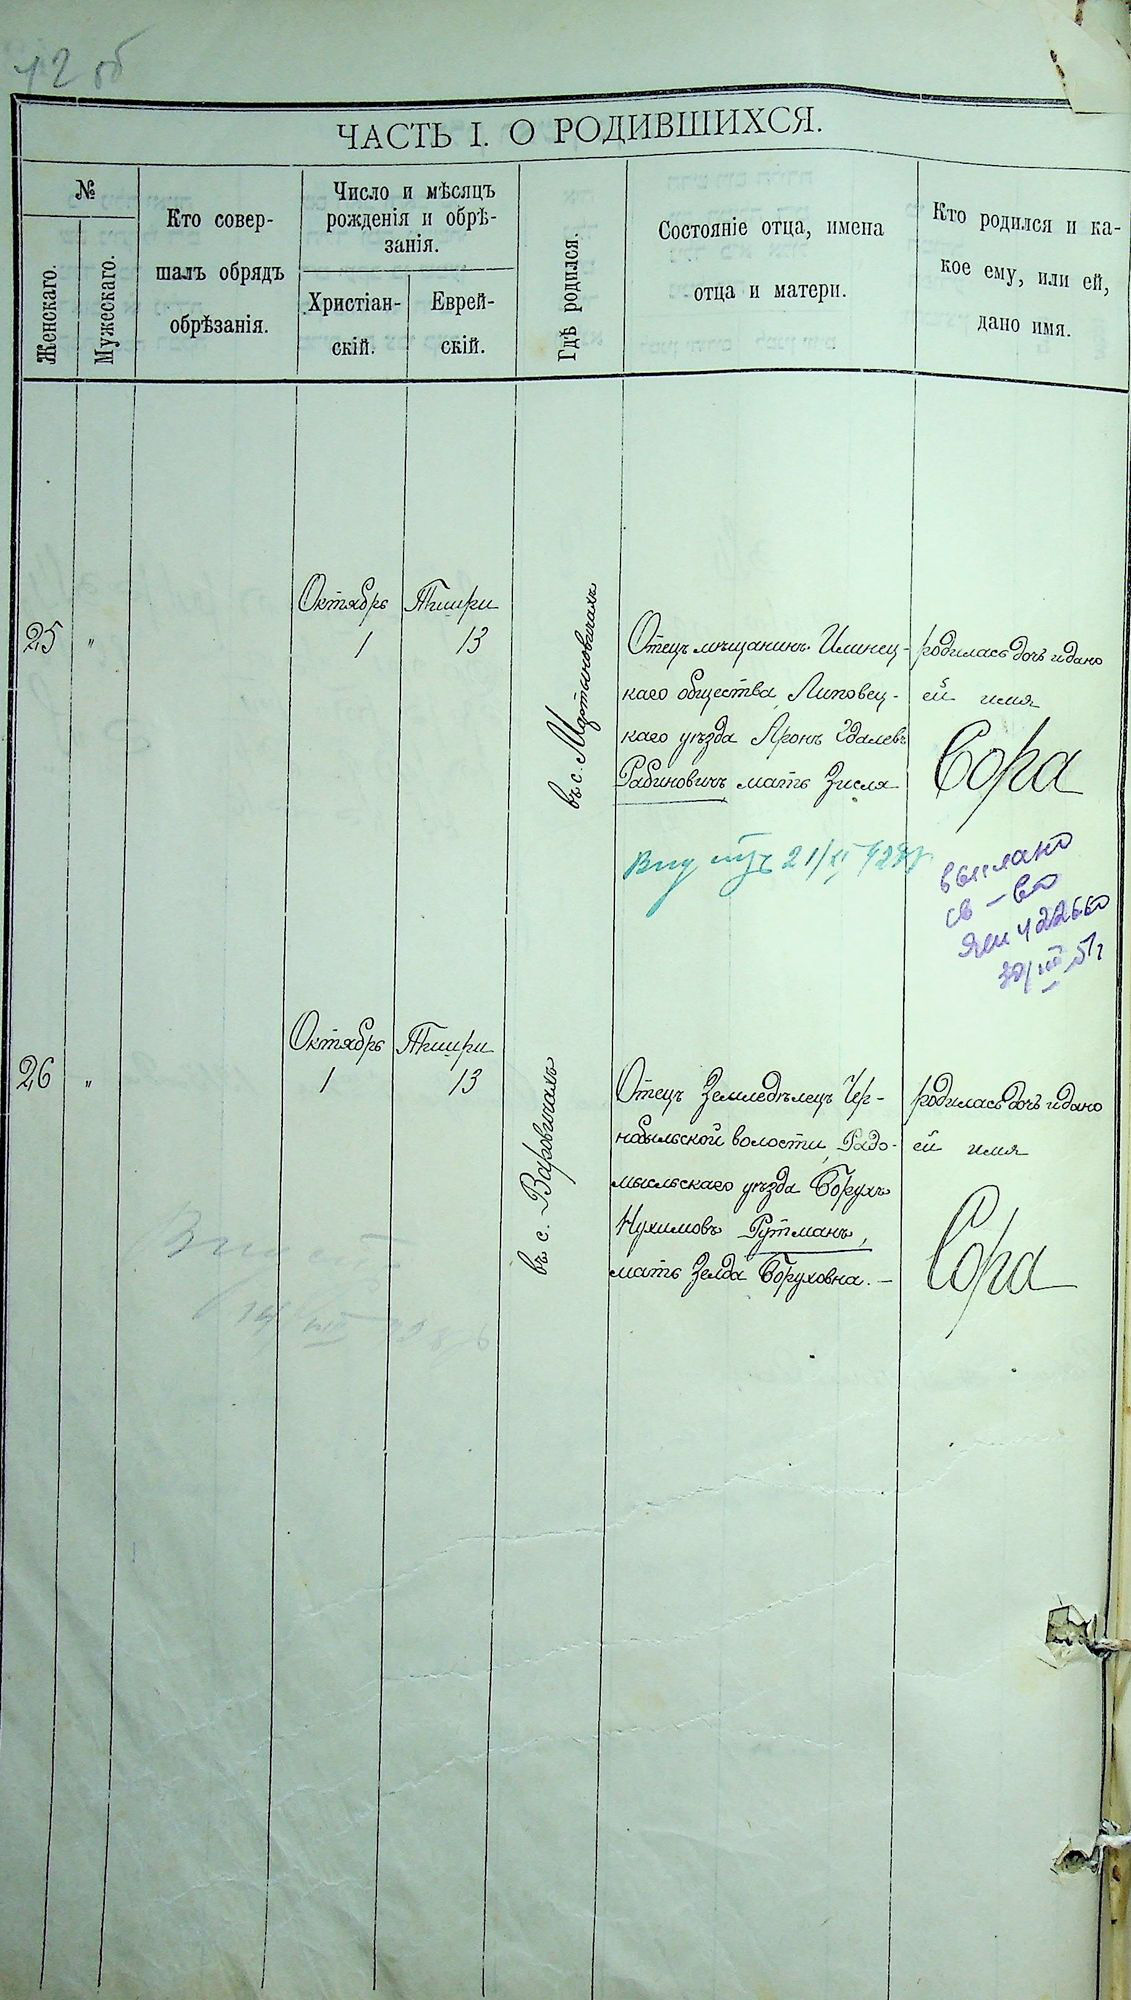 42 об
ЧАСТЬ I. О РОДИВШИХСЯ.
№
Женскаго.
Мужескаго.
Кто совер-
шалъ обрядъ
обрѣзанія.
Число и мѣсяцъ
рожденія и обрѣ-
занія.
Христіан-
скій.
Еврей-
скій.
Гдѣ родился.
Состояніе отца, имена
отца и матери.
Кто родился и ка-
кое ему, или ей,
дано имя.
25
"
Октябрь
1
Тишри
13
въ с. Мартыновичахъ
Отецъ мѣщанинъ Илинец-
каго общества, Липовец-
каго уѣзда Аронъ Удалевъ
Рабиновичъ мать Зисля
родилась дочь и дано
ей имя
Сора
21/XI
выслано
св-во
422660
30/III 51г
26
"
Октябрь
1
Тишри
13
въ с. Варовичахъ
Отецъ Земледѣлецъ Чер-
нобыльской волости, Радо-
мысльскаго уѣзда Борухъ
Нухимовъ Рутманъ,
мать Зелда Боруховна. —
родилась дочь и дано
ей имя
Сора